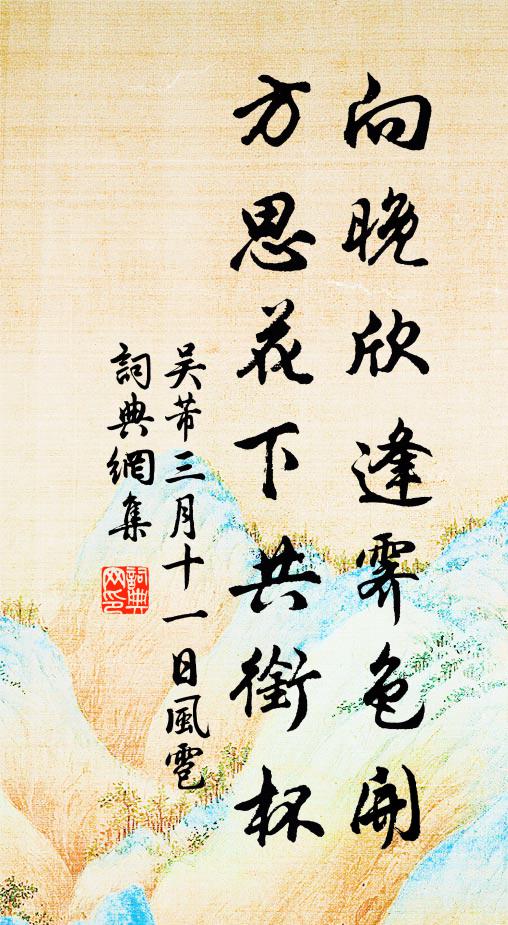 向晚欣逢霽色開
方思花下共銜杯
吴芾三月十一日風雹
詞典網集
詞典
网印